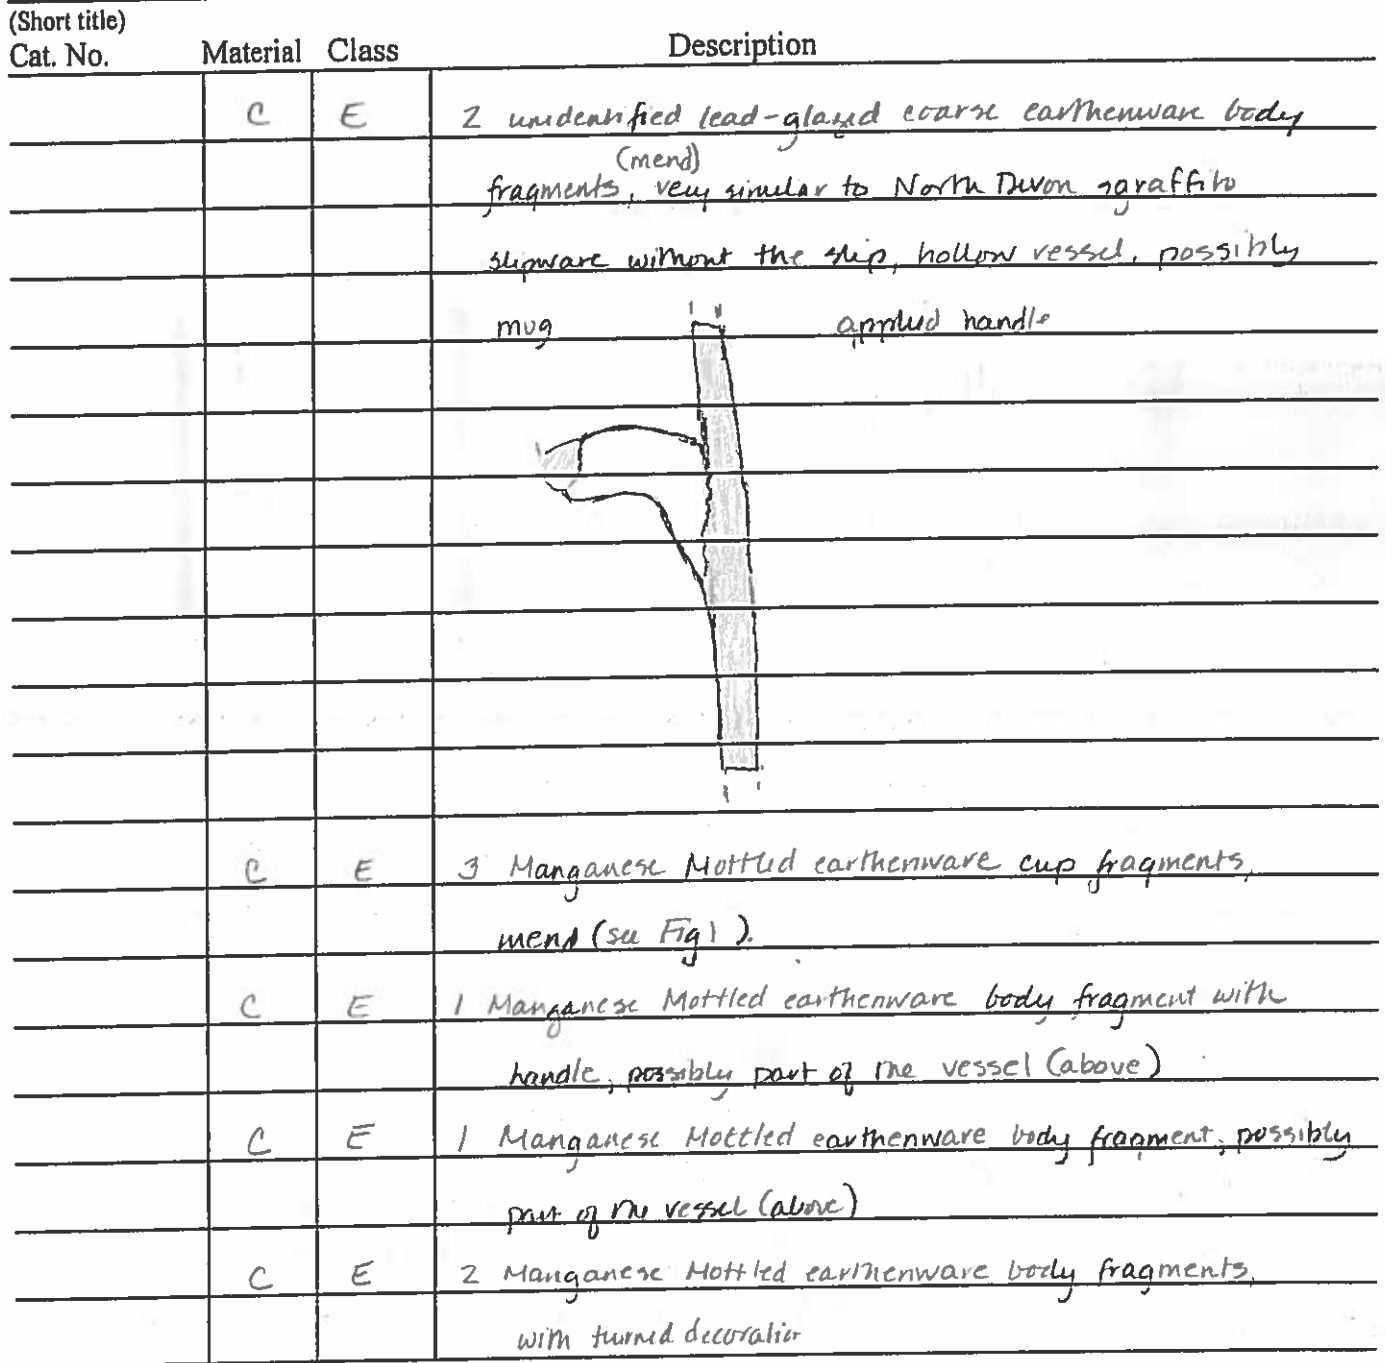 (Short title)
Cat. No. Material Class Description
C E 2 unidentified lead-glazed coarse earthenware body
(mend)
fragments, very similar to North Devon sgraffito
slipware without the slip, hollow vessel, possibly
mug applied handle
C E 3 Manganese Mottled earthenware cup fragments,
mend (see Fig 1).
C E 1 Manganese Mottled earthenware body fragment with
handle, possibly part of the vessel (above)
C E 1 Manganese Mottled earthenware body fragment, possibly
part of the vessel (above)
C E 2 Manganese Mottled earthenware body fragments,
with turned decoration